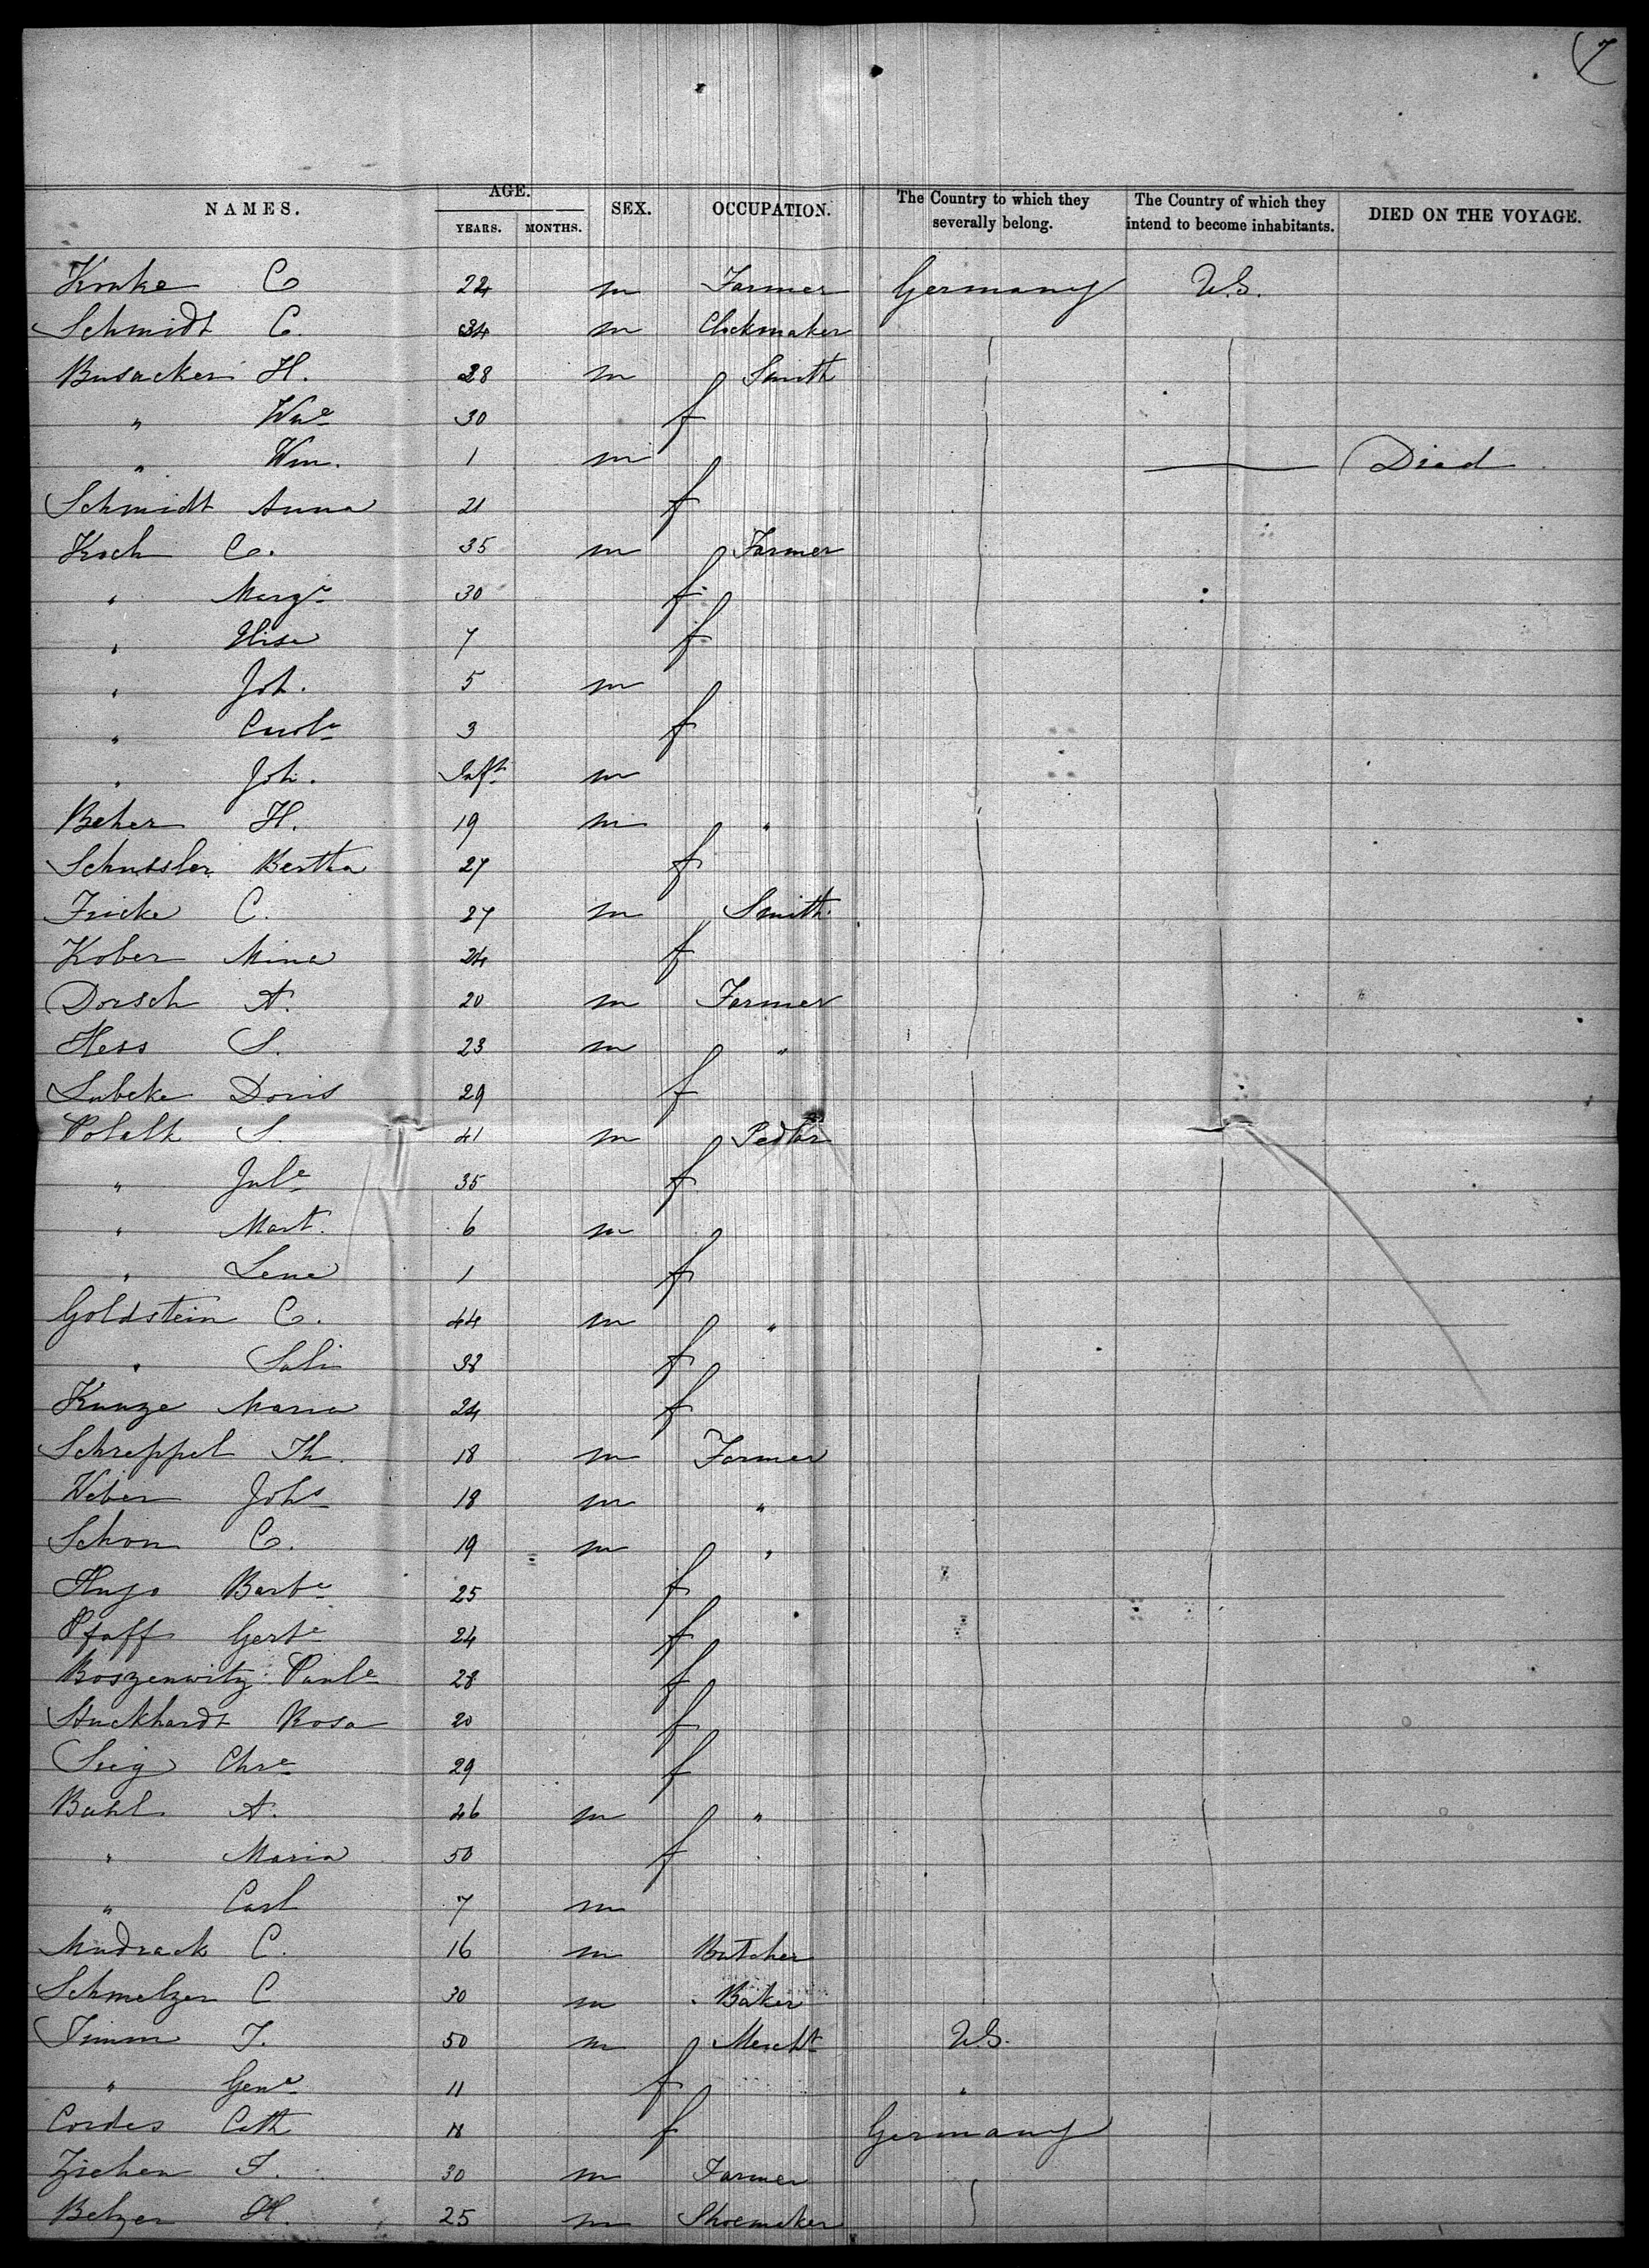 7
NAMES. AGE. YEARS. MONTHS. SEX. OCCUPATION. The Country to which they severally belong. The Country of which they intend to become inhabitants. DIED ON THE VOYAGE.
C 22 m Farmer Germany U.S.
Schmidt C. 34 m Clockmaker
Busacker H. 28 m Smith
" Wne 30 f
" Wm. 1 m Died
Schmidt Anna 21 f
Koch C. 35 m Farmer
" Marge 30 f
" Elise 7 f
" Joh. 5 m
" Carole 3 f
" Joh. Inft m
Beher H. 19 m "
Schussler Bertha 27 f
Fricke C. 27 m Smith
Kober Mina 24 f
Dorsch A. 20 m Farmer
Hess S. 23 m "
Lubcke Doris 29 f
S. 41 m Pedlar
" Jule 35 f
" Mart. 6 m
" Lene 1 f
Goldstein C. 44 m "
" Sali 38 f
Kunze Maria 24 f
Schreppel Th. 18 m Farmer
Weber Johs 18 m "
Schon C. 19 m "
Hugo Barbe 25 f
Pfaff Gerte 24 f
Roszenwitz Paule 28 f
Stuckhardt Rosa 20 f
Sieg Chre 29 f
Buhl A. 46 m "
" Maria 50 f
" Carl 7 m
Mudrack C. 16 m Butcher
Schmelzer C 30 m Baker
Timm J. 50 m Mercht U.S.
" Gene 11 f "
Cordes Cath 18 f Germany
Ziehen F. 30 m Farmer
Belzer H. 25 m Shoemaker